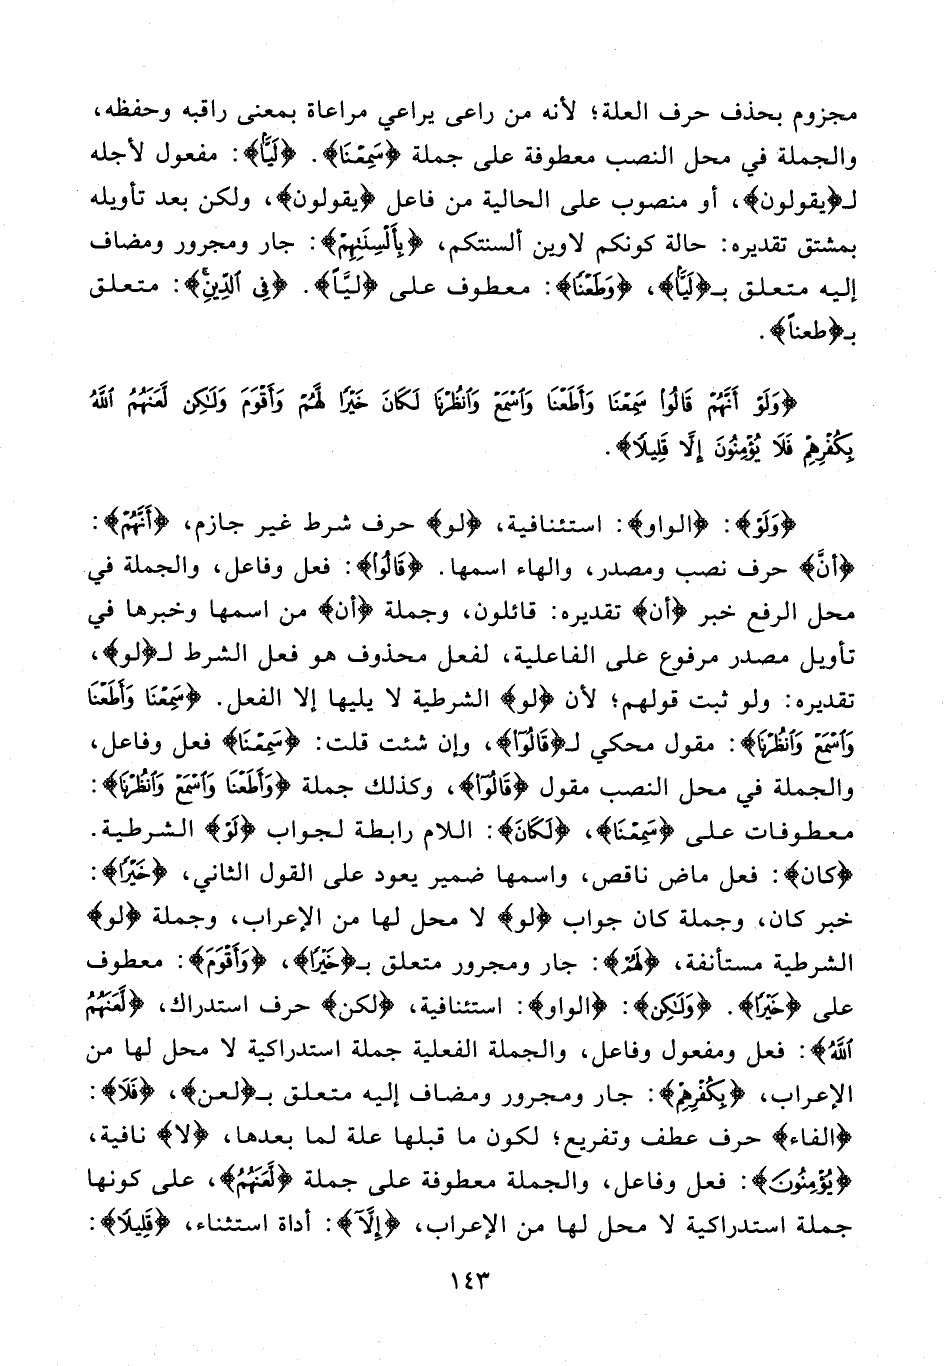 مجزوم بحذف حرف العلة؛ لأنه من راعى يراعي مراعاة بمعنى راقبه وحفظه،
والجملة في محل النصب معطوفة على جملة ﴿سَمِعْنَا﴾. ﴿لَيًّا﴾: مفعول لأجله
لـ﴿يقولون﴾، أو منصوب على الحالية من فاعل ﴿يقولون﴾، ولكن بعد تأويله
بمشتق تقديره: حالة كونكم لاوين ألسنتكم، ﴿بِأَلْسِنَتِهِمْ﴾: جار ومجرور ومضاف
إليه متعلق بـ﴿لَيًّا﴾، ﴿وَطَعْنًا﴾: معطوف على ﴿ليَّاً﴾. ﴿فِي ٱلدِّينِ﴾: متعلق
بـ﴿طعناً﴾.
﴿وَلَوْ أَنَّهُمْ قَالُوا۟ سَمِعْنَا وَأَطَعْنَا وَٱسْمَعْ وَٱنظُرْنَا لَكَانَ خَيْرًا لَّهُمْ وَأَقْوَمَ وَلَٰكِن لَّعَنَهُمُ ٱللَّهُ
بِكُفْرِهِمْ فَلَا يُؤْمِنُونَ إِلَّا قَلِيلًا﴾.
﴿وَلَوْ﴾: ﴿الواو﴾: استئنافية، ﴿لو﴾ حرف شرط غير جازم، ﴿أَنَّهُمْ﴾:
﴿أنَّ﴾ حرف نصب ومصدر، والهاء اسمها. ﴿قَالُوا۟﴾: فعل وفاعل، والجملة في
محل الرفع خبر ﴿أن﴾ تقديره: قائلون، وجملة ﴿أن﴾ من اسمها وخبرها في
تأويل مصدر مرفوع على الفاعلية، لفعل محذوف هو فعل الشرط لـ﴿لو﴾،
تقديره: ولو ثبت قولهم؛ لأن ﴿لو﴾ الشرطية لا يليها إلا الفعل. ﴿سَمِعْنَا وَأَطَعْنَا
وَٱسْمَعْ وَٱنظُرْنَا﴾: مقول محكي لـ﴿قَالُوٓا۟﴾، وإن شئت قلت: ﴿سَمِعْنَا﴾ فعل وفاعل،
والجملة في محل النصب مقول ﴿قَالُوٓا۟﴾، وكذلك جملة ﴿وَأَطَعْنَا وَٱسْمَعْ وَٱنظُرْنَا﴾:
معطوفات على ﴿سَمِعْنَا﴾، ﴿لَكَانَ﴾: اللام رابطة لجواب ﴿لَوْ﴾ الشرطية.
﴿كان﴾: فعل ماض ناقص، واسمها ضمير يعود على القول الثاني، ﴿خَيْرًا﴾:
خبر كان، وجملة كان جواب ﴿لو﴾ لا محل لها من الإعراب، وجملة ﴿لو﴾
الشرطية مستأنفة، ﴿لَهُمْ﴾: جار ومجرور متعلق بـ﴿خَيْرًا﴾، ﴿وَأَقْوَمَ﴾: معطوف
على ﴿خَيْرًا﴾. ﴿وَلَٰكِن﴾: ﴿الواو﴾: استئنافية، ﴿لكن﴾ حرف استدراك، ﴿لَّعَنَهُمُ
ٱللَّهُ﴾: فعل ومفعول وفاعل، والجملة الفعلية جملة استدراكية لا محل لها من
الإعراب، ﴿بِكُفْرِهِمْ﴾: جار ومجرور ومضاف إليه متعلق بـ﴿لعن﴾، ﴿فَلَا﴾:
﴿الفاء﴾ حرف عطف وتفريع؛ لكون ما قبلها علة لما بعدها، ﴿لا﴾ نافية،
﴿يُؤْمِنُونَ﴾: فعل وفاعل، والجملة معطوفة على جملة ﴿لَّعَنَهُمُ﴾، على كونها
جملة استدراكية لا محل لها من الإعراب، ﴿إِلَّآ﴾: أداة استثناء، ﴿قَلِيلًا﴾:
١٤٣